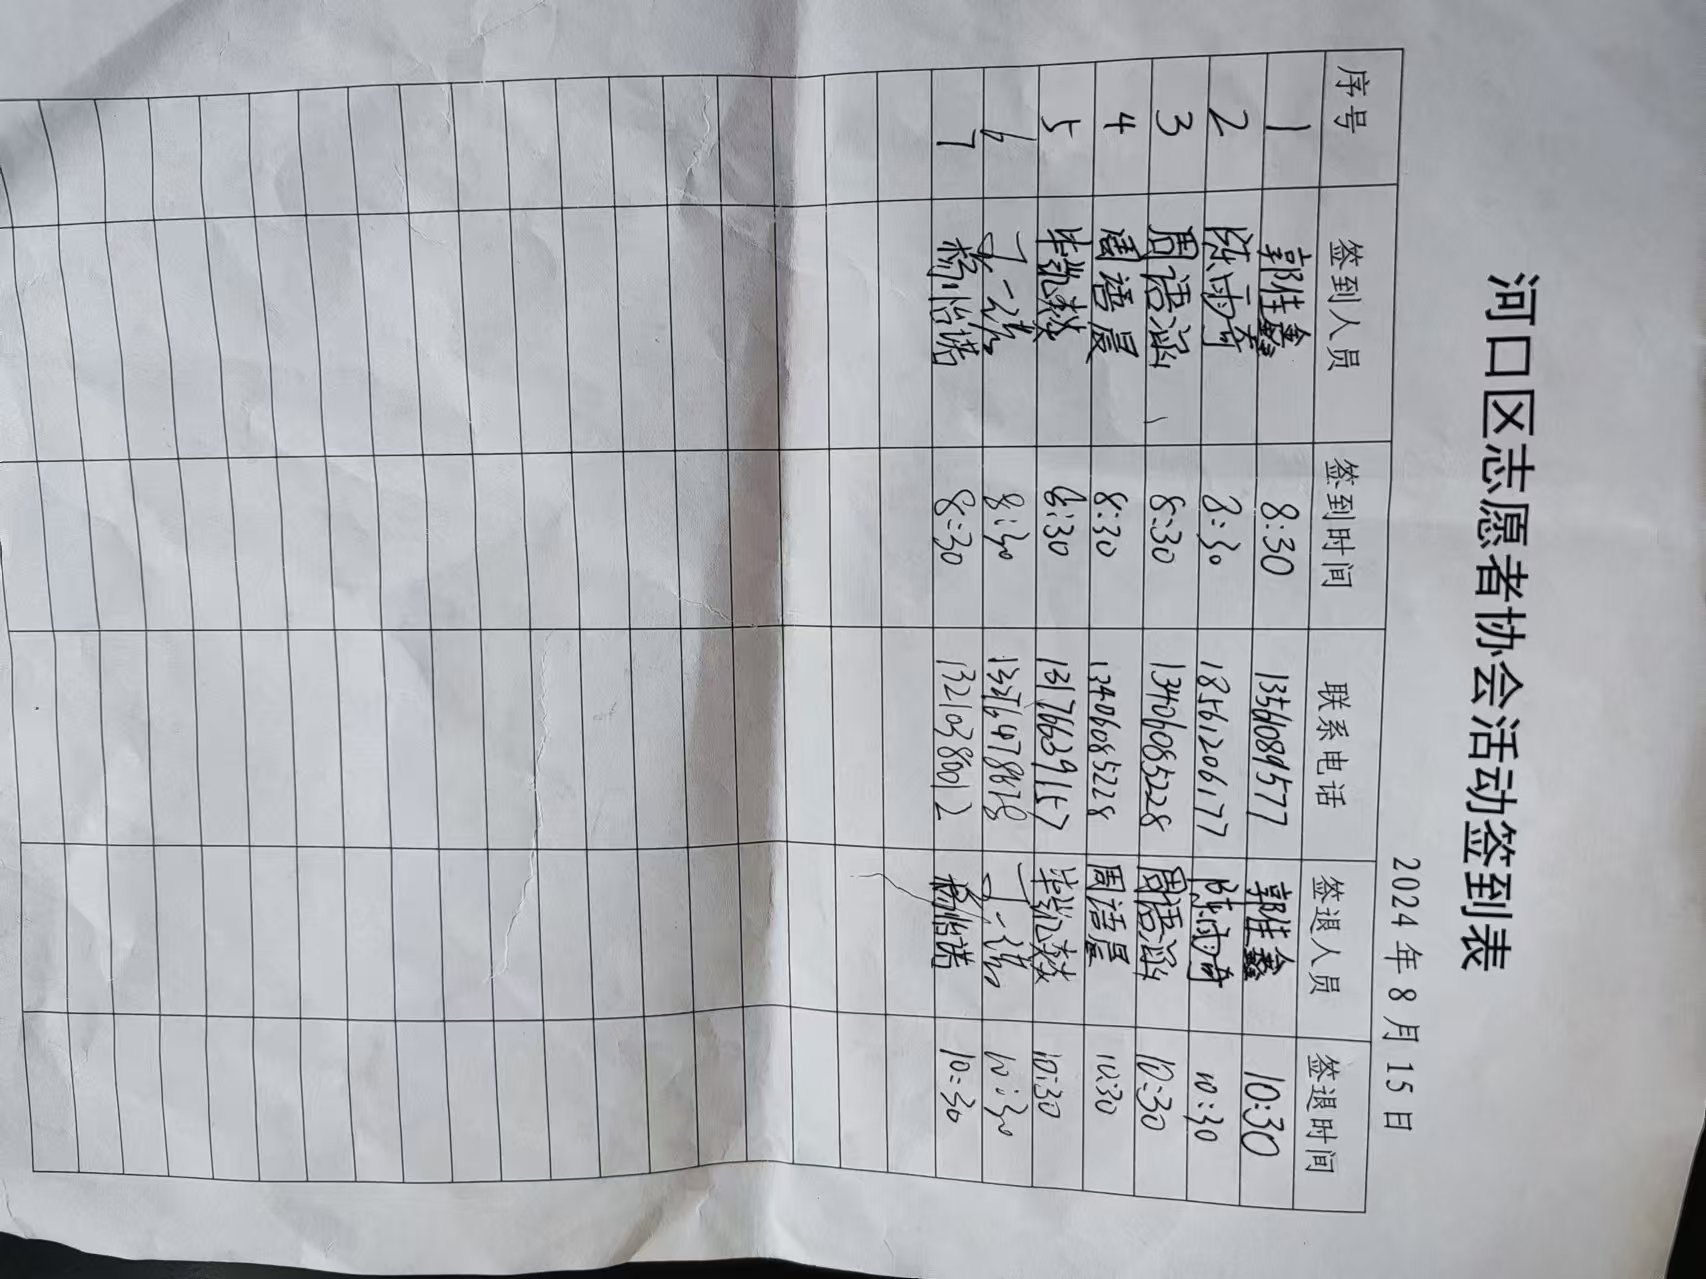 河口区志愿者协会活动签到表
2024 年 8 月 15 日
序号 签到人员 签到时间 联系电话 签退人员 签退时间
1 郭佳鑫 8:30 13561089577 郭佳鑫 10:30
2 陈雨奇 8:30 18561206177 陈雨奇 10:30
3 周语涵 8:30 13406085228 周语涵 10:30
4 周语晨 8:30 13406085228 周语晨 10:30
5 8:30 13176639157 10:30
6 丁一诺 8:30 丁一诺 10:30
7 杨怡诺 8:30 13210380012 杨怡诺 10:30